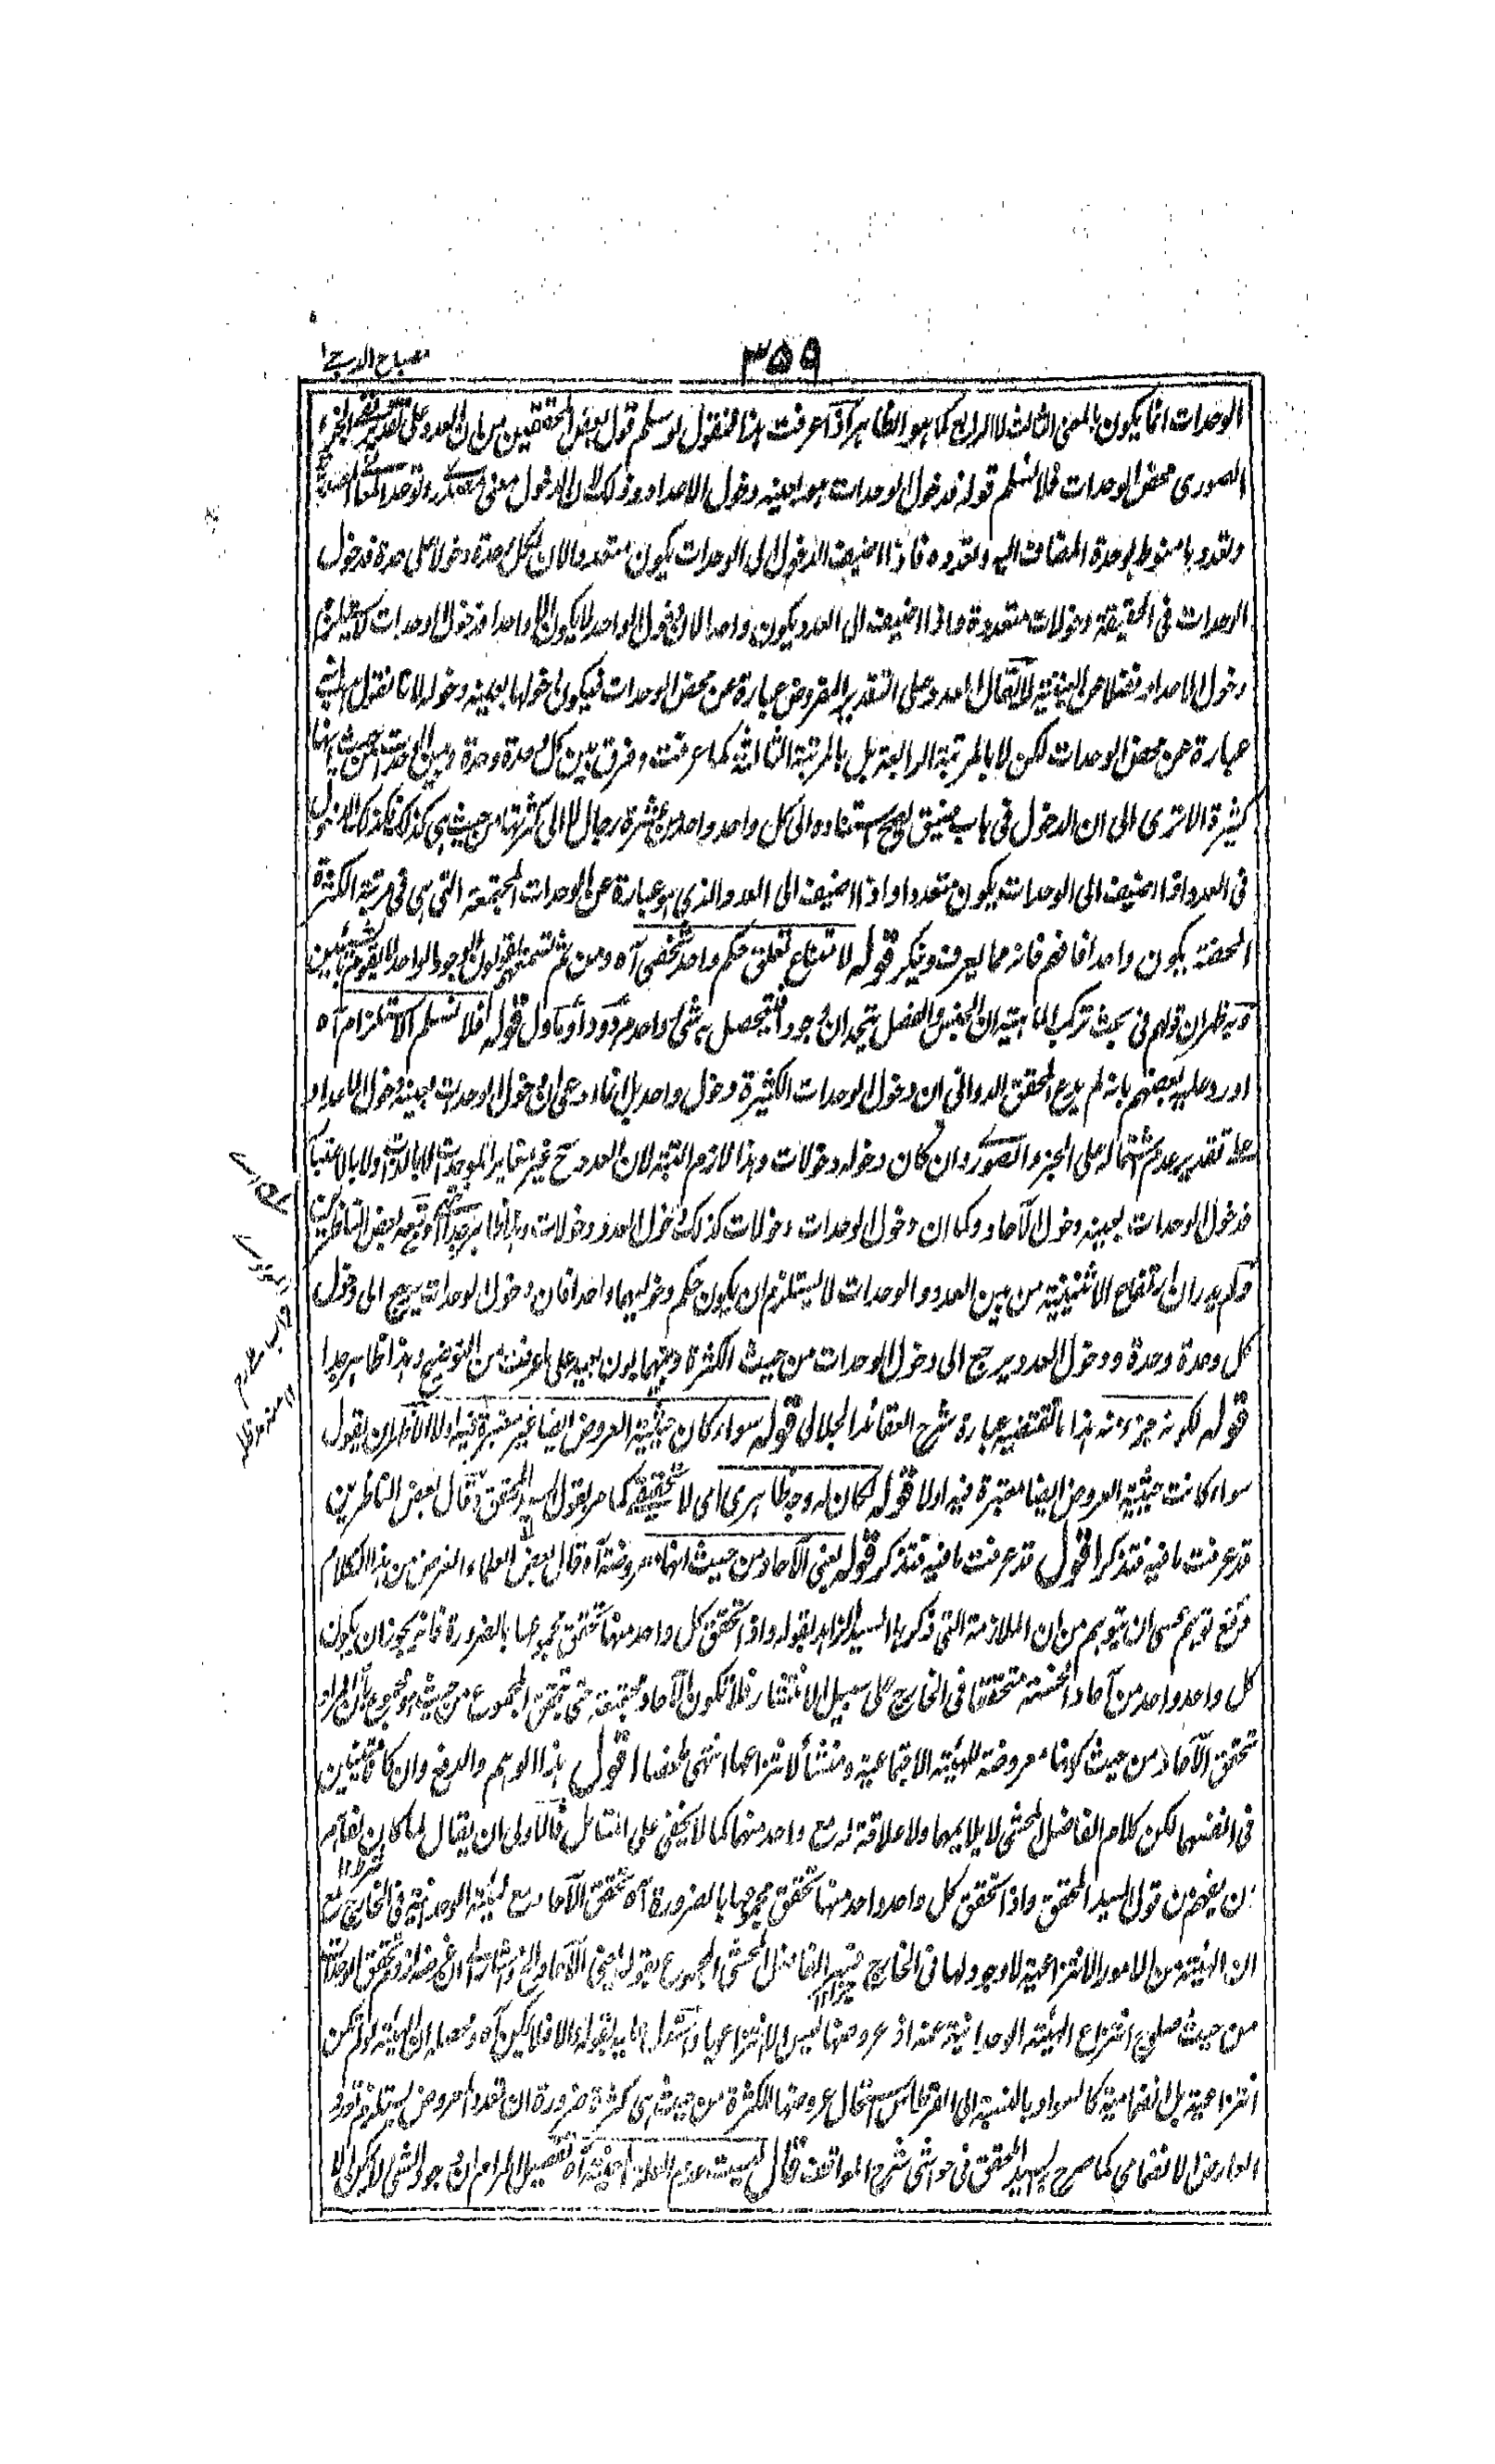 ۳۵۹
مصباح الدجى
الوحدات انما يكون بالمعنى الثالث لا الرابع كما هو الظاهر اذا عرفت هذا فنقول لو سلم قول بعض المحققين من ان العدد على تقدير الجزء
الصورى محض الوحدات فلا نسلم قوله فدخول الوحدات هو بعينه دخول الاعداد وذلك لان الدخول معنى
وتعددها منوط بوحدة المضاف اليه وتعدده فاذا اضيف الدخول الى الوحدات يكون متعددا لان لكل وحدة دخولا على حدة فدخول
الوحدات فى الحقيقة دخولات متعددة واذا اضيف الى العدد يكون واحدا لان دخول الواحد لا يكون الا واحدا فدخول الوحدات لا يستلزم
دخول الاعداد فضلا عن العينية لا يقال العدد على التقدير المفروض عبارة عن محض الوحدات فيكون دخولها بعينه دخوله لانا نقول
عبارة عن محض الوحدات لكن لا بالمرتبة الرابعة بل بالمرتبة الثالثة كما عرفت وفرق بين كل وحدة وحدة وبين الوحدات من حيث انها
كثيرة الا ترى الى ان الدخول فى باب ضيق يصح استناده الى كل واحد واحد من عشرة رجال لا الى كثرتها من حيث هى كذلك فكذلك الدخول
فى العدد اذا اضيف الى الوحدات يكون متعددا واذا اضيف الى العدد والذي هو عبارة عن الوحدات المجتمعة التى هى فى مرتبة الكثرة
المحضة يكون واحدا فافهم فانه مما يعرف وينكر قوله لامتناع تعلق حكم واحد شخصى آه ومن ثم تسمعهم يقولون الوجود الواحد لا يقوم بشيئين
وبه ظهر ان قولهم فى بحث تركب الماهية ان الجنس والفصل يتحدان وجودا فيتحصل به شئ واحد مردود او مأول قوله فلا نسلم الاستلزام آه
اورد عليه بعضهم بانه لم يدع المحقق الدوانى ان دخول الوحدات الكثيرة دخول واحد بل انما ادعى ان دخول الوحدات بعينه دخول الاعداد
على تقدير عدم اشتماله على الجزء الصورى وان كان دخوله دخولات وهذا لازم البتة لان العدد ح غير مغاير للوحدات لا بالذات ولا بالاعتبار
فدخول الوحدات بعينه دخول الآحاد وكما ان دخول الوحدات دخولات كذلك دخول العدد دخولات وتبعه بعض الناظرين
ولم يدر ان ارتفاع الاثنينية من بين العدد والوحدات لا يستلزم ان يكون حكم دخولهما واحدا فان دخول الوحدات يرجع الى دخول
كل وحدة وحدة ودخول العدد يرجع الى دخول الوحدات من حيث الكثرة وبينهما بون بعيد على ما عرفت من التوضيح وهذا ظاهر جدا
قوله لكونه جزءً منه هذا ما تقتضيه عبارة شرح العقائد الجلالى قوله سواء كان حيثية العروض ايضا غير معتبرة فيه اولا الاظهر ان يقول
سواء كانت حيثية العروض ايضا معتبرة فيه اولا قوله لكان له وجه ظاهرى اى لا تحقيقى كما مر بقول السيد المحقق وقال بعض الناظرين
قد عرفت ما فيه فتذكر اقول قد عرفت ما فيه فتذكر قوله يعنى الآحاد من حيث انها معروضة آه قال بعض العلماء الغرض من هذا الكلام
دفع توهم عسى ان يتوهم من ان الملازمة التى ذكرها السيد الزاهد بقوله واذا تحقق كل واحد منها تحقق مجموعها بالضرورة فانه يجوز ان يكون
كل واحد واحد من آحاد الخمسة متحققا فى الخارج على سبيل الانتشار فلا تكون الآحاد مجتمعة حتى يتحقق المجموع من حيث هو مجموع بان المراد
تحقق الآحاد من حيث كونها معروضة للهيئة الاجتماعية ومنشأ لانتزاعها انتهى ملخصا اقول هذا الوهم والدفع وان كانا متينين
فى انفسهما لكن كلام الفاضل المحشى لا يلايمهما ولا علاقة له مع واحد منهما كما لا يخفى على المتأمل فالاولى ان يقال لما كان لقائل
ان يفهم من قول السيد المحقق واذا تحقق كل واحد واحد منها تحقق مجموعها بالضرورة آه تحقق الآحاد مع الهيئة الوحدانية فى الخارج مع
ان الهيئة من الامور الانتزاعية لا وجود لها فى الخارج فسر الفاضل المحشى المجموع بقوله يعنى الآحاد الخ
من حيث صلوح انتزاع الهيئة الوحدانية عنه اذ عروضها ليس الا انتزاعيا واستدل عليه بقوله والا فلا يمكن آه ومحصله ان الهيئة لو لم تكن
انتزاعية بل انضمامية كالسواد بالنسبة الى القرطاس استحال عروضها للكثرة من حيث هى كثرة ضرورة ان تعدد المعروض يستلزم تعدد
العارض الانضمامى كما صرح به السيد المحقق فى حواشى شرح المواقف قال ليست عدم العلة آه تفصيل المرام ان وجود الشئ لا يكون الا